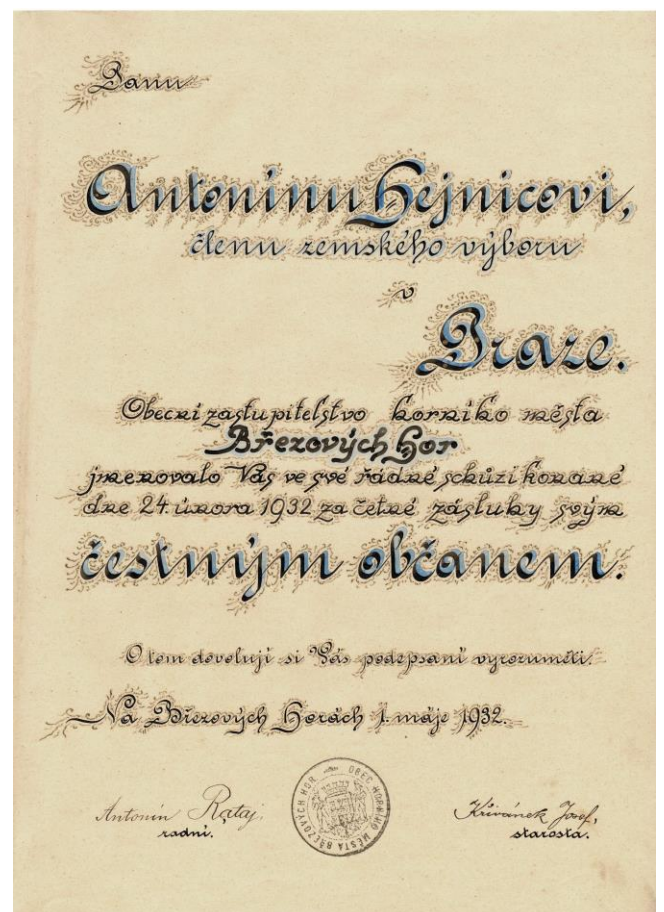 Panu
Antonínu Hejnicovi,
členu zemského výboru
v
Praze.
Obecní zastupitelstvo horního města
Březových Hor
jmenovalo Vás ve své řádné schůzi konané
dne 24 února 1932 za četné zásluhy svým
čestným občanem.
O tom dovolují si Vás podepsaní vyrozuměti.
Na Březových Horách 1. máje 1932.
OBEC HORNÍHO MĚSTA BŘEZOVÝCH HOR
Antonín Rataj.
radní.
Křivánek Josef,
starosta.